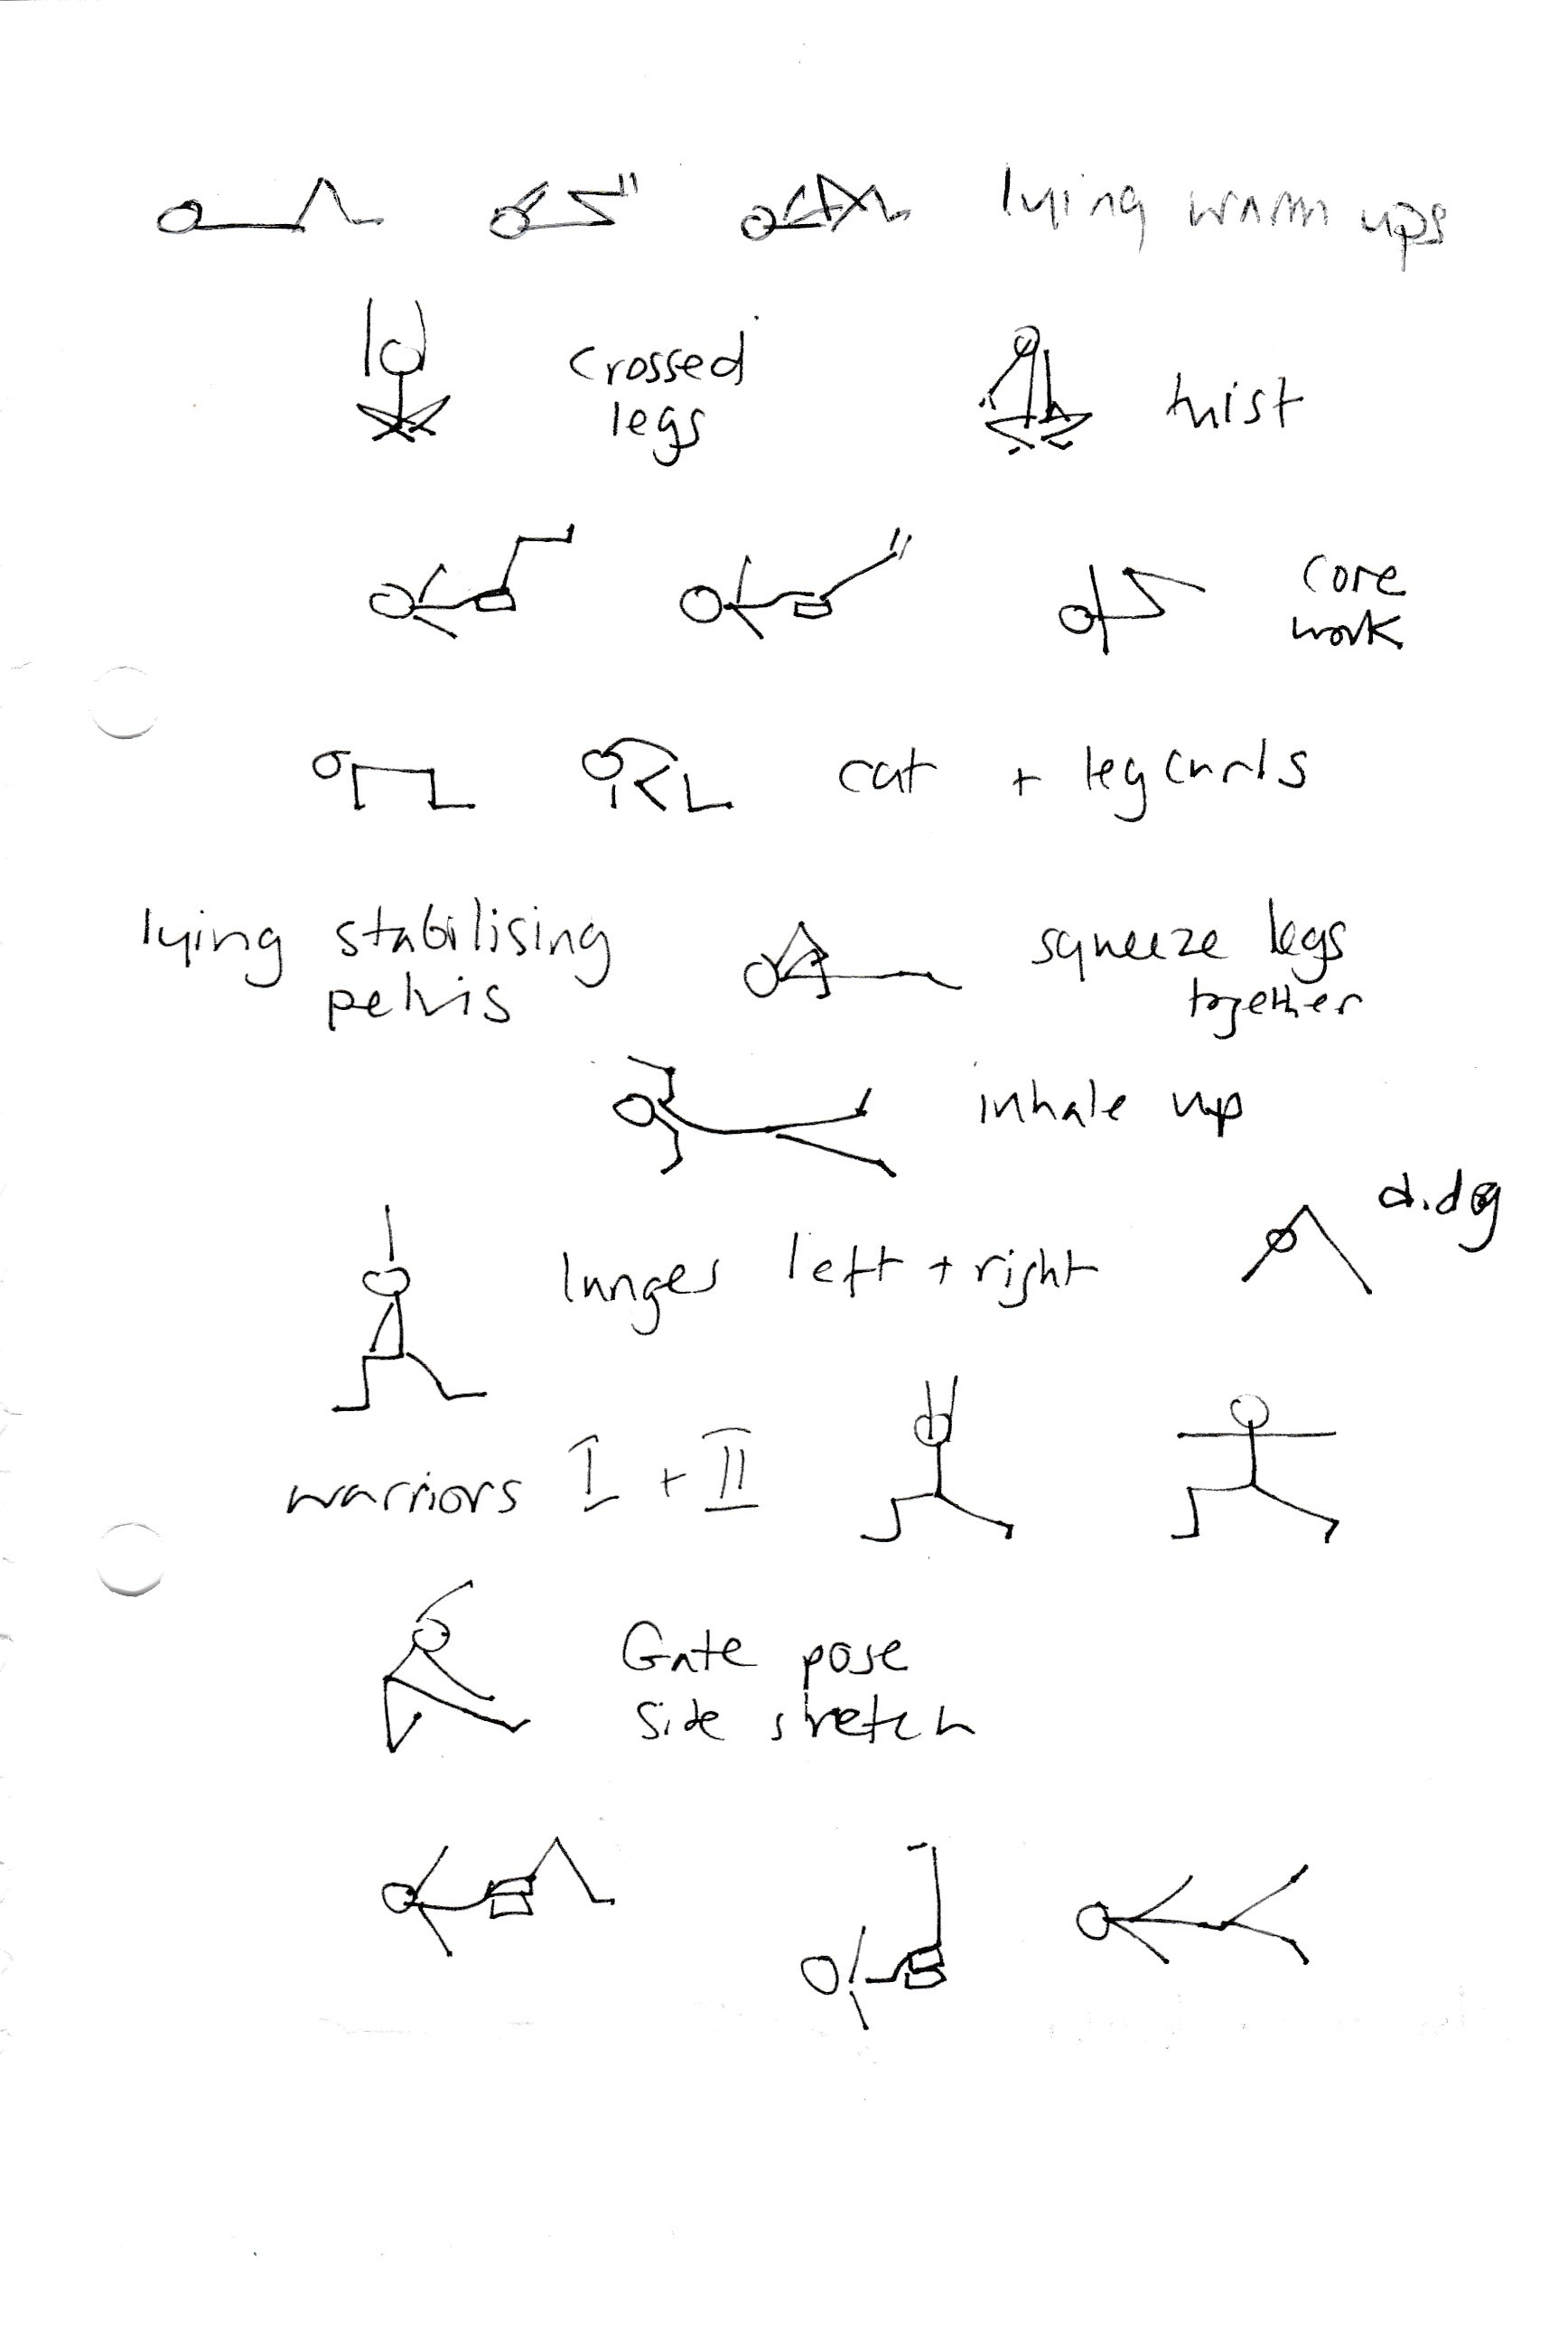 lying warm ups
crossed
legs
twist
core
work
cat + leg curls
lying stabilising
pelvis
squeeze legs
together
inhale up
d.dog
lunges left + right
warriors I + II
Gate pose
Side stretch